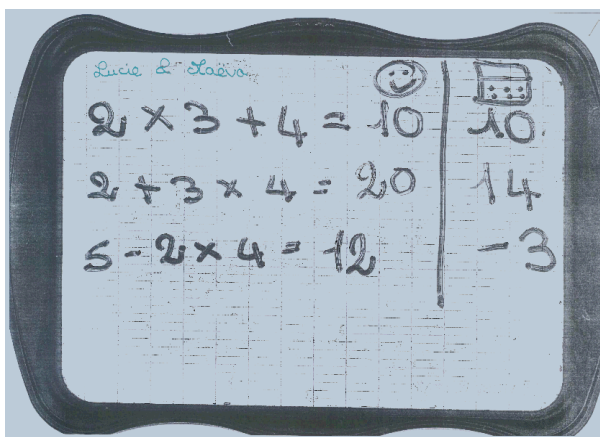 Lucie & Maëva
2 × 3 + 4 = 10 10
2 + 3 × 4 = 20 14
5 - 2 × 4 = 12 - 3